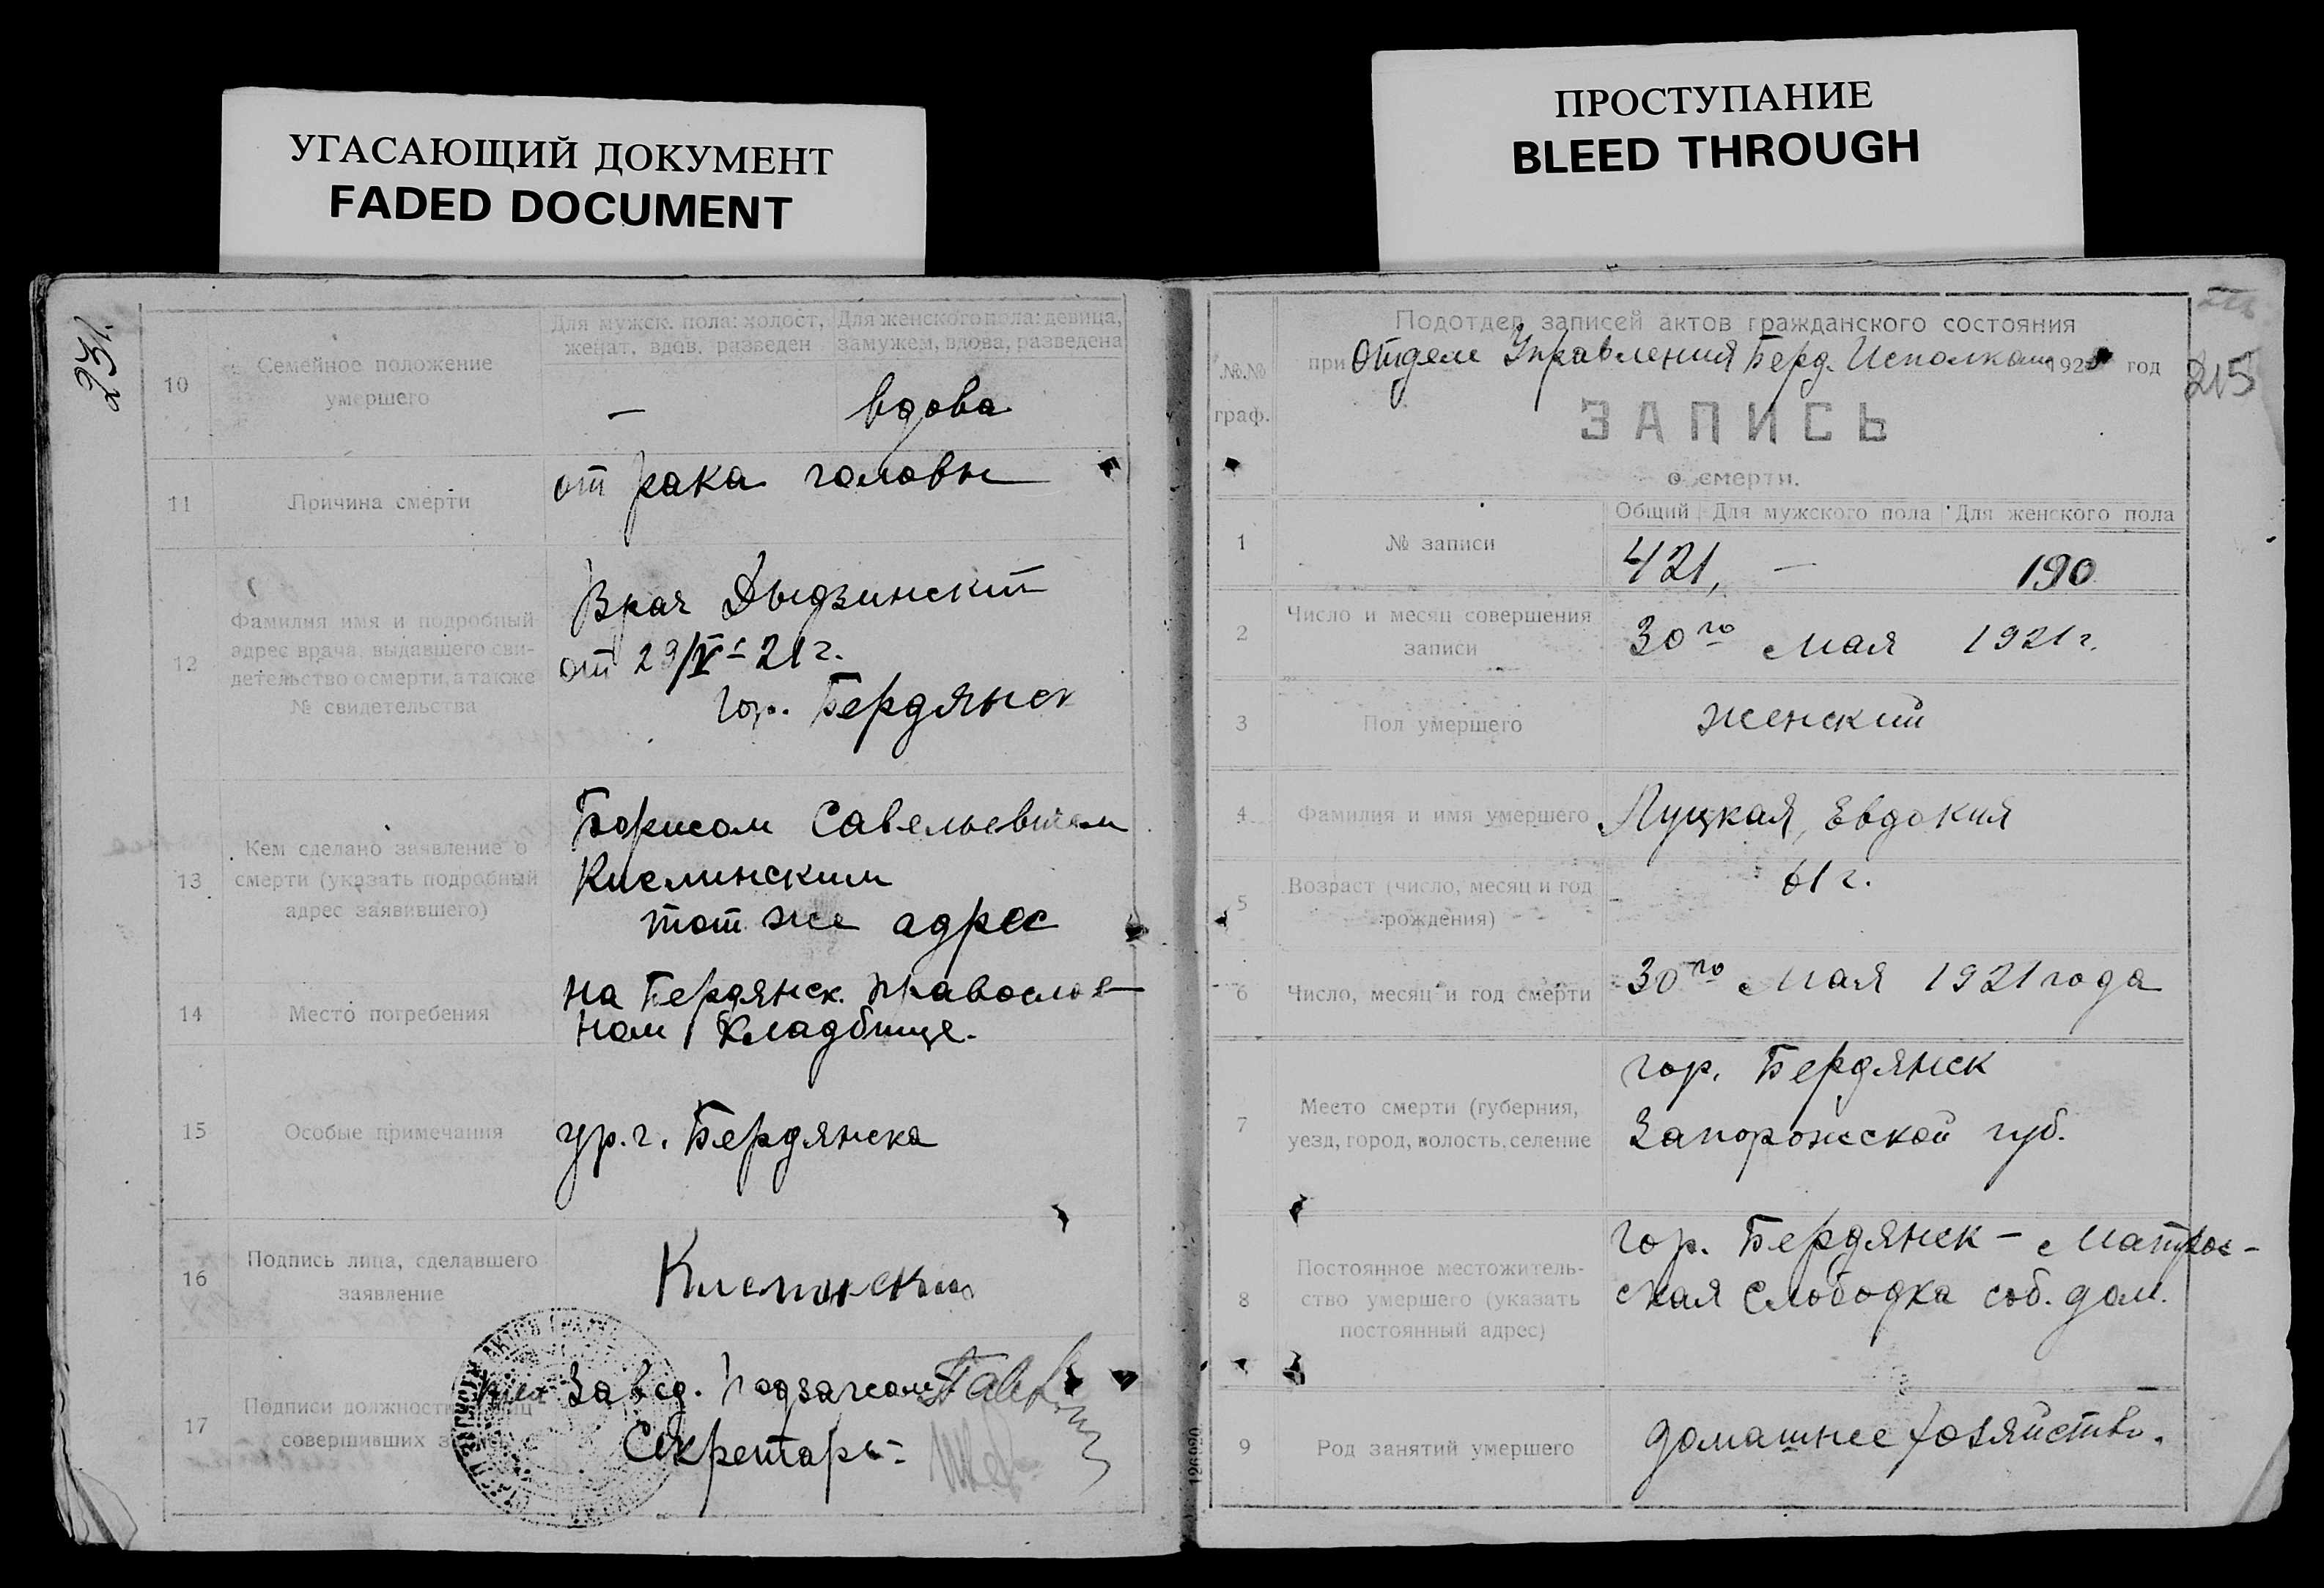 УГАСАЮЩИЙ ДОКУМЕНТ
FADED DOCUMENT
ПРОСТУПАНИЕ
BLEED THROUGH
231.
10
Семейное положение
умершего
Для мужск. пола: холост,
женат, вдов, разведен
Для женского пола: девица,
замужем, вдова, разведена
—
вдова
11
Причина смерти
от рака головы
12
Фамилия имя и подробный
адрес врача, выдавшего сви-
детельство о смерти, а также
№ свидетельства
Врач Дыдзинский
от 29/V - 21 г.
гор. Бердянск
13
Кем сделано заявление о
смерти (указать подробный
адрес заявившего)
Борисом Савельевичем
Кислинским
тот же адрес
14
Место погребения
на Бердянск. православ-
ном кладбище.
15
Особые примечания
ур. г. Бердянска
16
Подпись лица, сделавшего
заявление
Кислинский
17
Подписи должностных лиц
совершивших
Завед. Подзагсом
Секретарь-
Подотдел записей актов гражданского состояния
при Отделе Управления Берд. Исполкома 192 год
215
№№
граф.
ЗАПИСЬ
о смерти.
1
№ записи
Общий
Для мужского пола
Для женского пола
421,
—
190
2
Число и месяц совершения
записи
30го мая 1921 г.
3
Пол умершего
женский
4
Фамилия и имя умершего
Луцкая, Евдокия
5
Возраст (число, месяц и год
рождения)
61 г.
6
Число, месяц и год смерти
30го мая 1921 года
7
Место смерти (губерния,
уезд, город, волость, селение
гор. Бердянск
Запорожской губ.
8
Постоянное местожитель-
ство умершего (указать
постоянный адрес)
гор. Бердянск - Матрос-
ская Слободка соб. дом.
9
Род занятий умершего
домашнее хозяйство.
126980